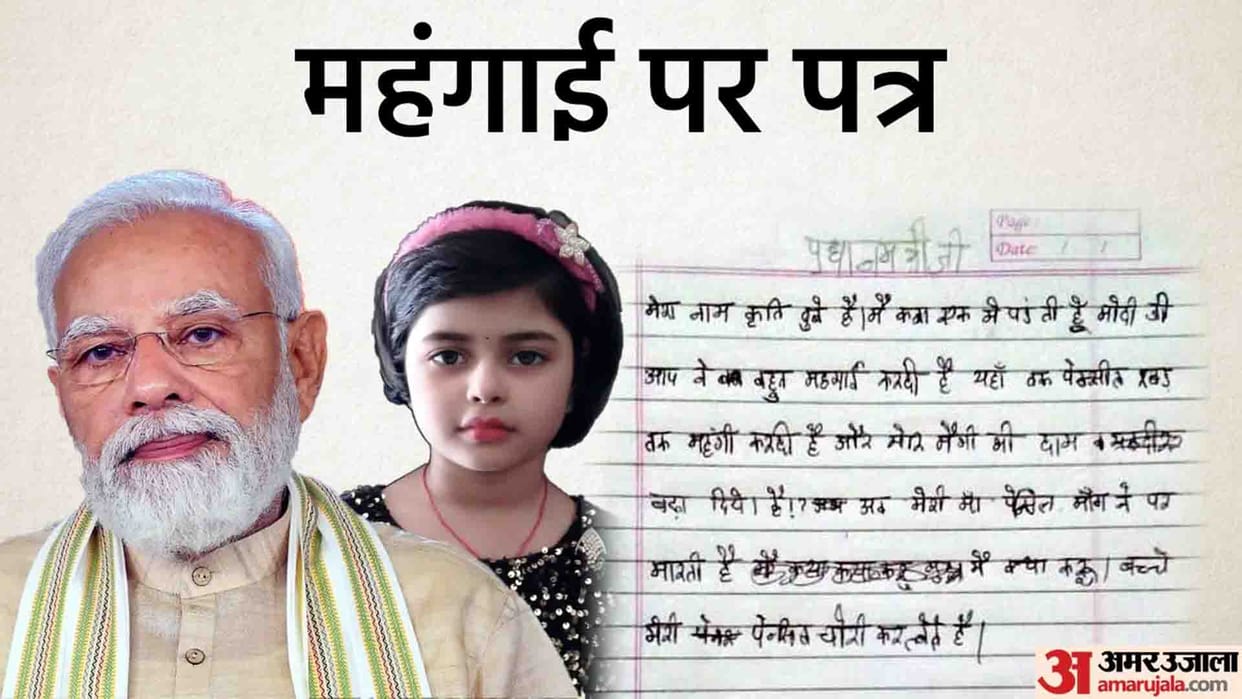 महंगाई पर पत्र
Page:
Date: / /
प्रधानमंत्री जी
मेरा नाम कृति दुबे है। मै कक्षा एक मे पड़ती हूँ मोदी जी
आप ने बहुत महगाई करदी है यहाँ तक पेन्सील रबड़
तक महंगी करदी है और मेरि मैगी की दाम
बढ़ा दिये। है!? अब मेरी माँ पेन्सिल माँग ने पर
मारती है मै क्या करू। बच्चे
मेरी पेन्सिल चोरी कर लेते है।
अ अमर उजाला
amarujala.com